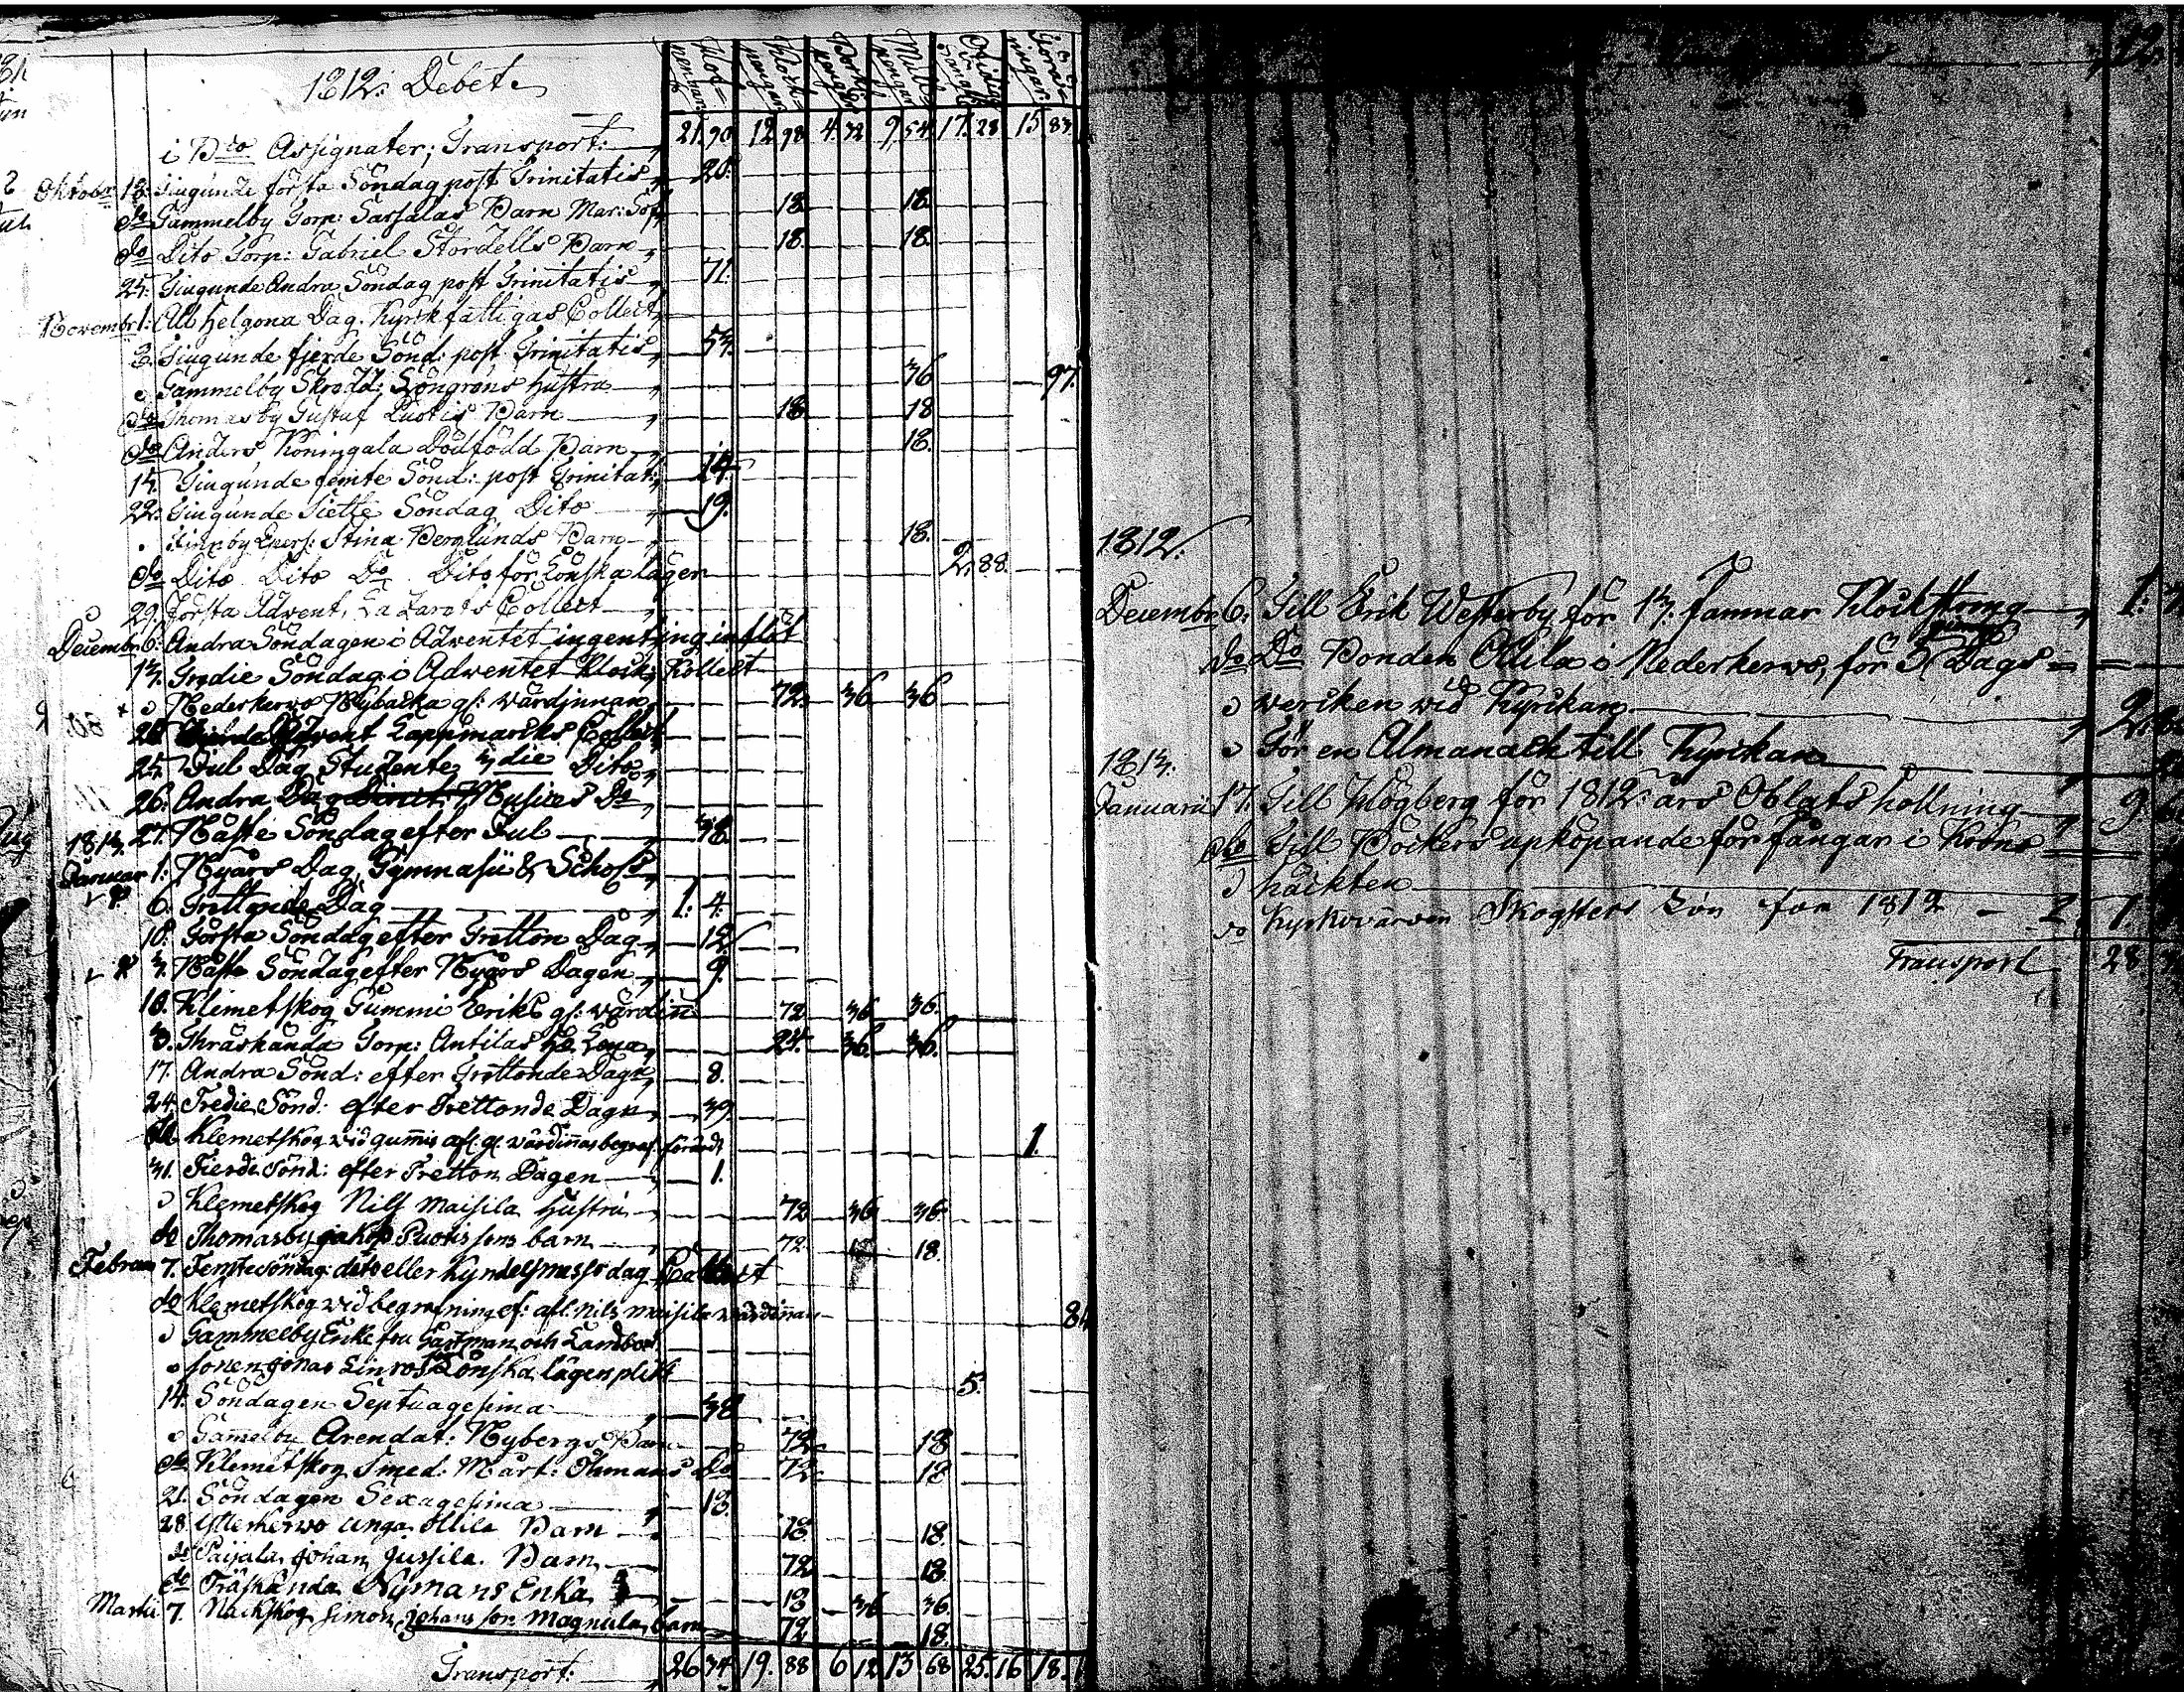 1812. Debet.
Håf= penngar. Kork= penngar. Bork= penngar. Mull= penngar.
i D:to Assignater; Transport: 21 90 12 98 4 32 9 54 17 28 15 83
Oktobr 18. Tiugunde första Söndag post Trinitatis 20.
do Gammelby Torp: Sarsalas Barn Mar: Sof 18. 18.
do Dito Torp: Gabriel Stordells Barn 18. 18.
25. Tiugunde Andra Söndag post Trinitatis 71.
Novembr 1. All Helgona Dag. Kyrkfattigas Collect
8. Tiugunde fjerde Sönd: post Trinitatis 54.
Gammelby Skrädd: Löngrens Hustru 36 97.
do Thomasby Gustaf Puotis Barn 18 18
do Anders Koningala Dödfödd Barn 18.
15. Tiugunde femte Sönd: post Trinitat: 14
22. Tiugunde Siette Söndag Dito 19.
Stina Berglunds Barn 18.
do Dito Dito Do Dito för Lönska lägen 2. 88.
29. Första Advent, Lazarets Collect
Decembr 6. Andra Söndagen i Adventet ingenting inflöt
13. Tredie Söndag i Adventet Klock: Kollect
Nederkervo Nybacka gl: Värdinnan 72. 36 36
20. Fjerde Advent Lappmarcks Collect
25. Jul Dag Studente 3die Dito
26. Andra Dag Musices Do
27. Näste Söndag efter Jul 38.
1813.
Januar 1. Nyårs Dag, Gymnasii & Schols
6. Trettonde Dag 1. 4.
10. Första Söndag efter Tretton Dag 12
3. Näste Söndag efter Nyårs Dagen 9.
10. Klemetskog Gummi Eriks gl: värdin 72 36 36.
3. Thräskända Torp: Antilas Lena 24. 36. 36.
17. Andra Sönd: efter Trettonde Dagn 8.
24. Tredie Sönd: efter Trettonde Dagn 39.
do Klemetskog vid gumis afl: gl värdinnas begraf: förärdt 1.
31. Fierde Sönd: efter Tretton Dagen 1.
Klemetskog Nils Maisila Hustru 72 36 36.
do Thomasby Jakop Puotis sons barn 72. 18.
Februari 7. Femte söndag: dito eller Kyndelsmässo dag Collect
do Klemetskog vid begrafning af: afl: nils maisila värdinnan 81
Gammelby Enkefru Gartman och Landbon
sonen Jonas Linros Lönska lägen plikt 5.
14. Söndagen Septuagesima 38
Gamelby Arendat: Nybergs Barn 72 18
do Klemetskog Smed: Märt: Öhmans Do 72 18
21. Söndagen Sexagesima 13.
28. Ytterkervo unga Ollila Barn 18. 18.
do Paijala Johan Jussila Barn 72 18
do Träskända Nymans Enka 18 36 36.
Martii 7. Nackskog Simon Johans son Magnula barn 72 18.
Transport: 26 34 19. 88 6 12 13 68 25. 16 18.
1812.
Decembr 6. Till Erik Westerby för 13. famnar Klockstreng 1:
do Do Bonden Ollila i Nederkervo, för 5 Dags=
verken vid Kyrkan 2.
För en Almanach till Kyrkan
1813.
Januarii 17. Till Högberg för 1812. års Oblats hållning 9
do Till Böckers upköpande för fångar i Krono
häckten
do Kyrkovärden Skogsters Lön för 1812 1.
Transport 28